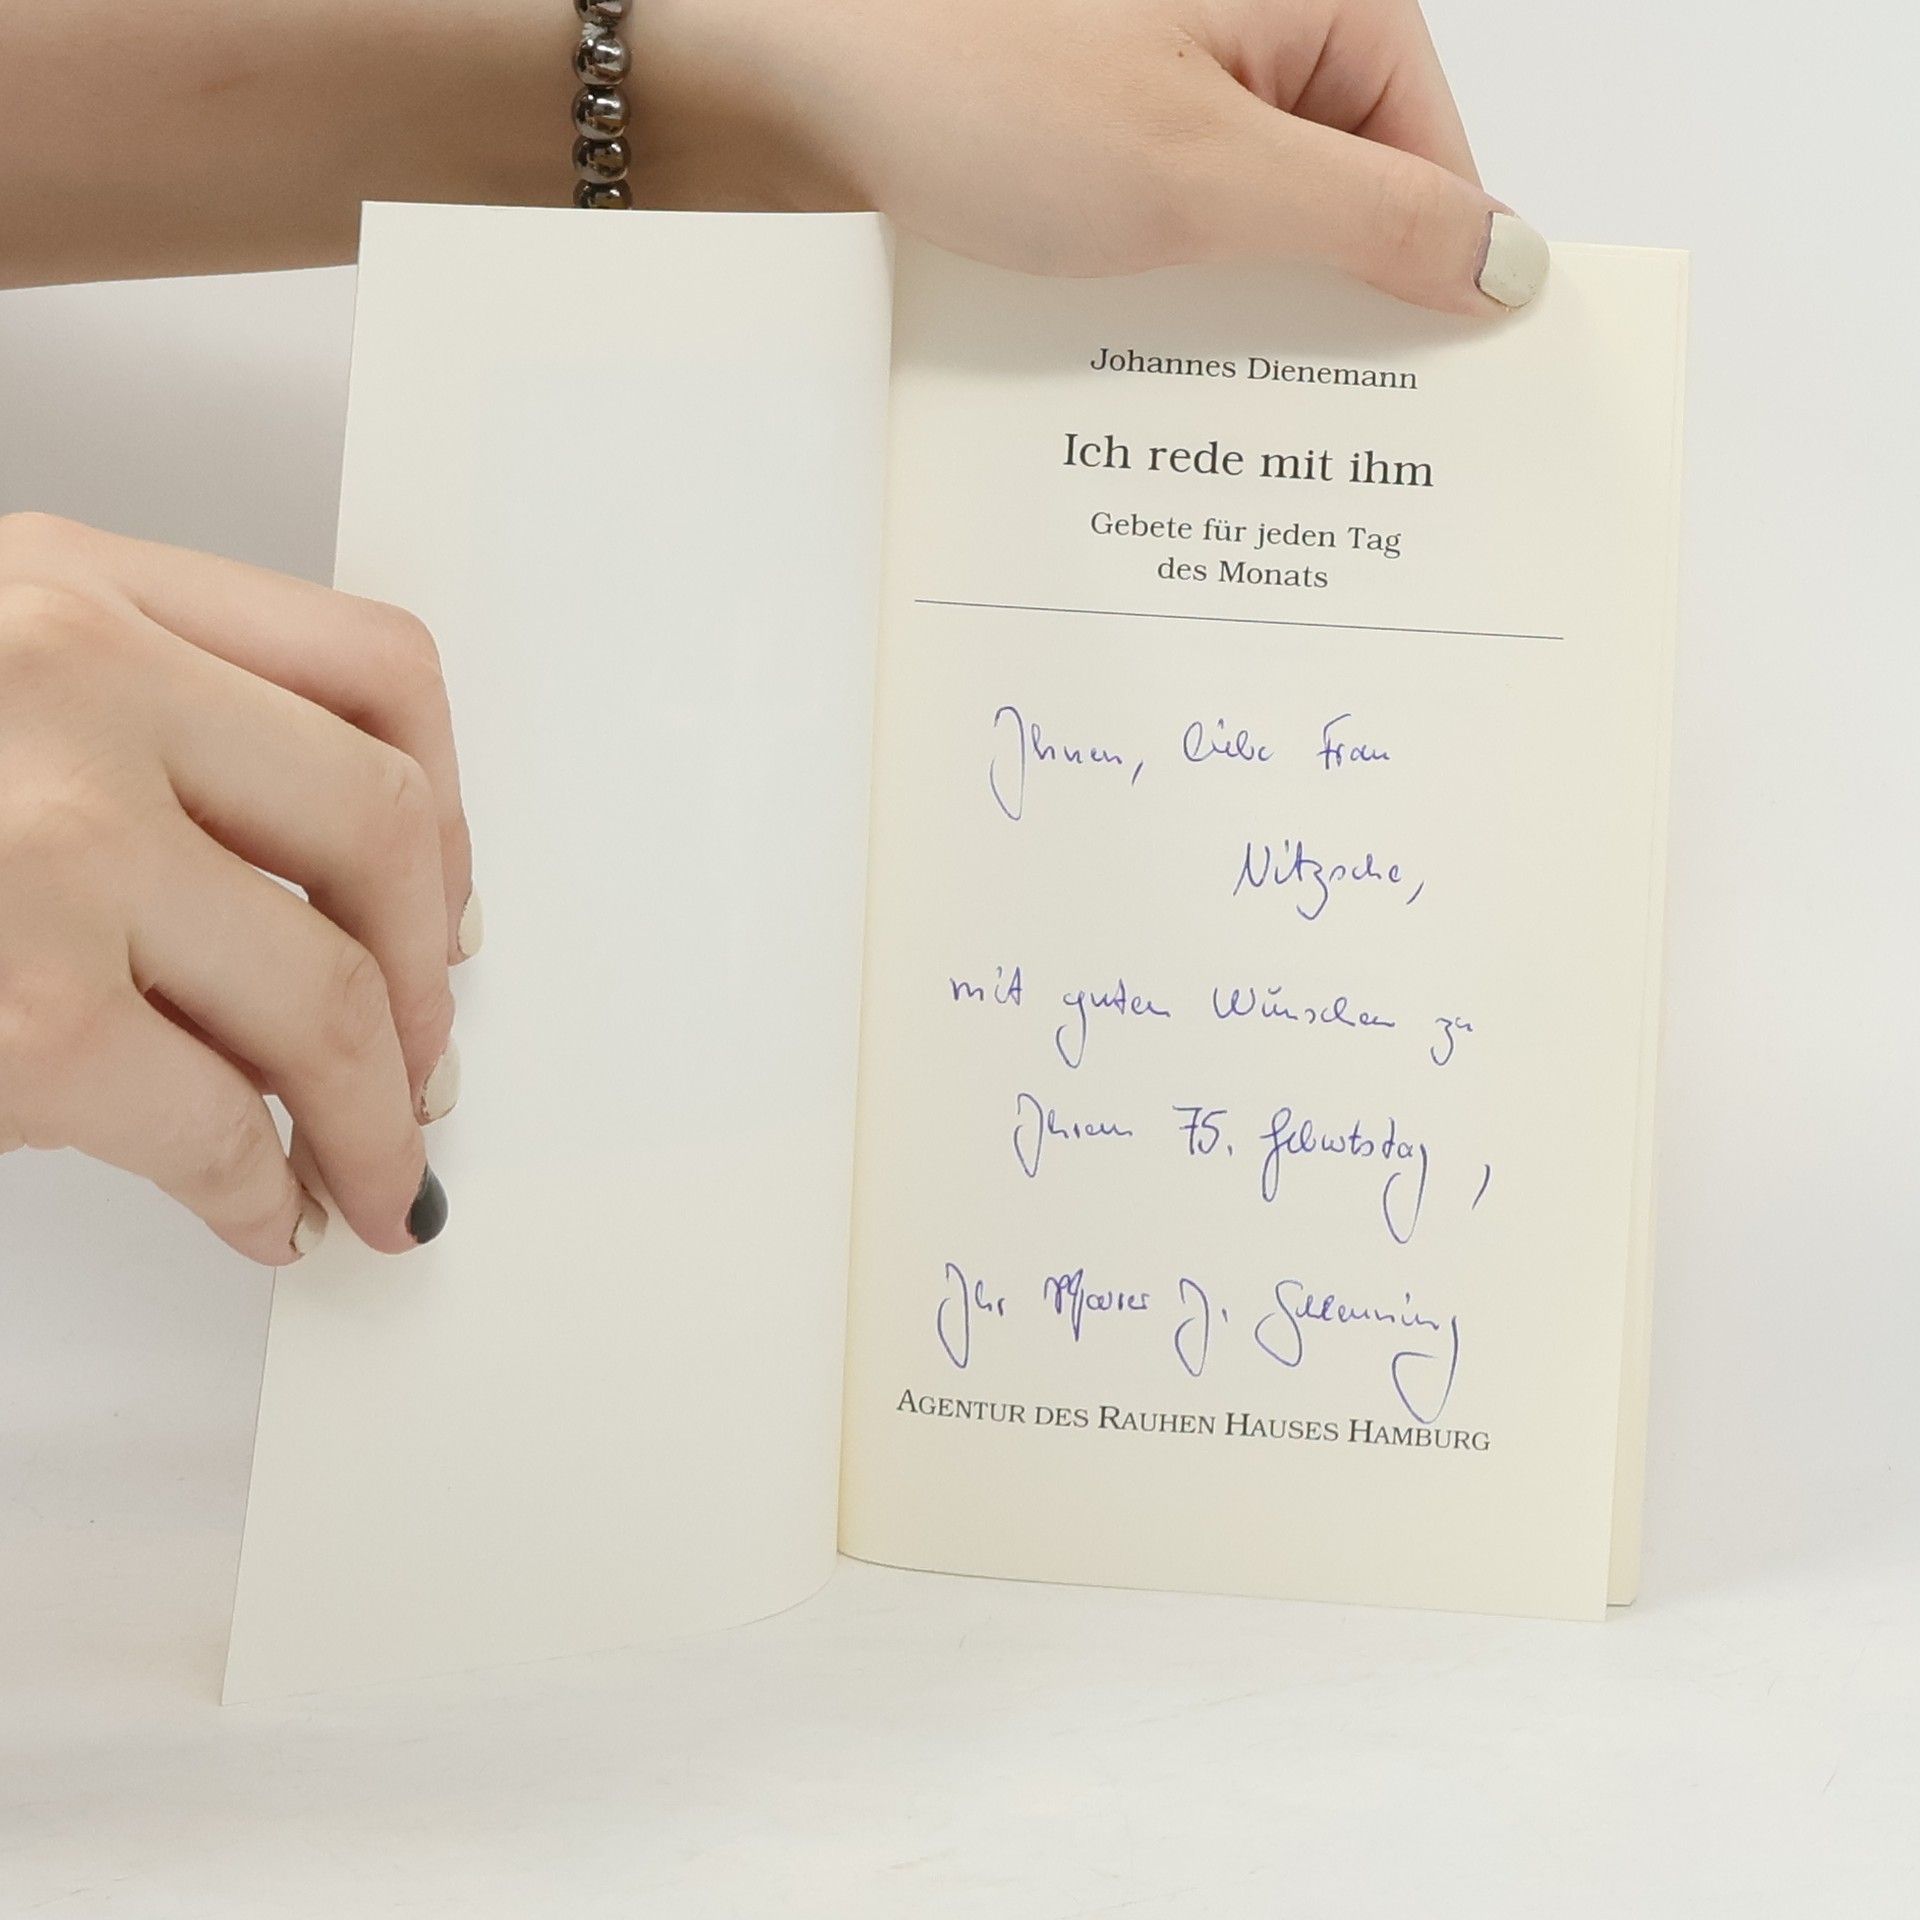 Johannes Dienemann
Ich rede mit ihm
Gebete für jeden Tag
des Monats
Ihnen, liebe Frau
Nitzsche,
mit guten Wünschen zu
Ihrem 75. Geburtstag,
Ihr Pfarrer J.
AGENTUR DES RAUHEN HAUSES HAMBURG